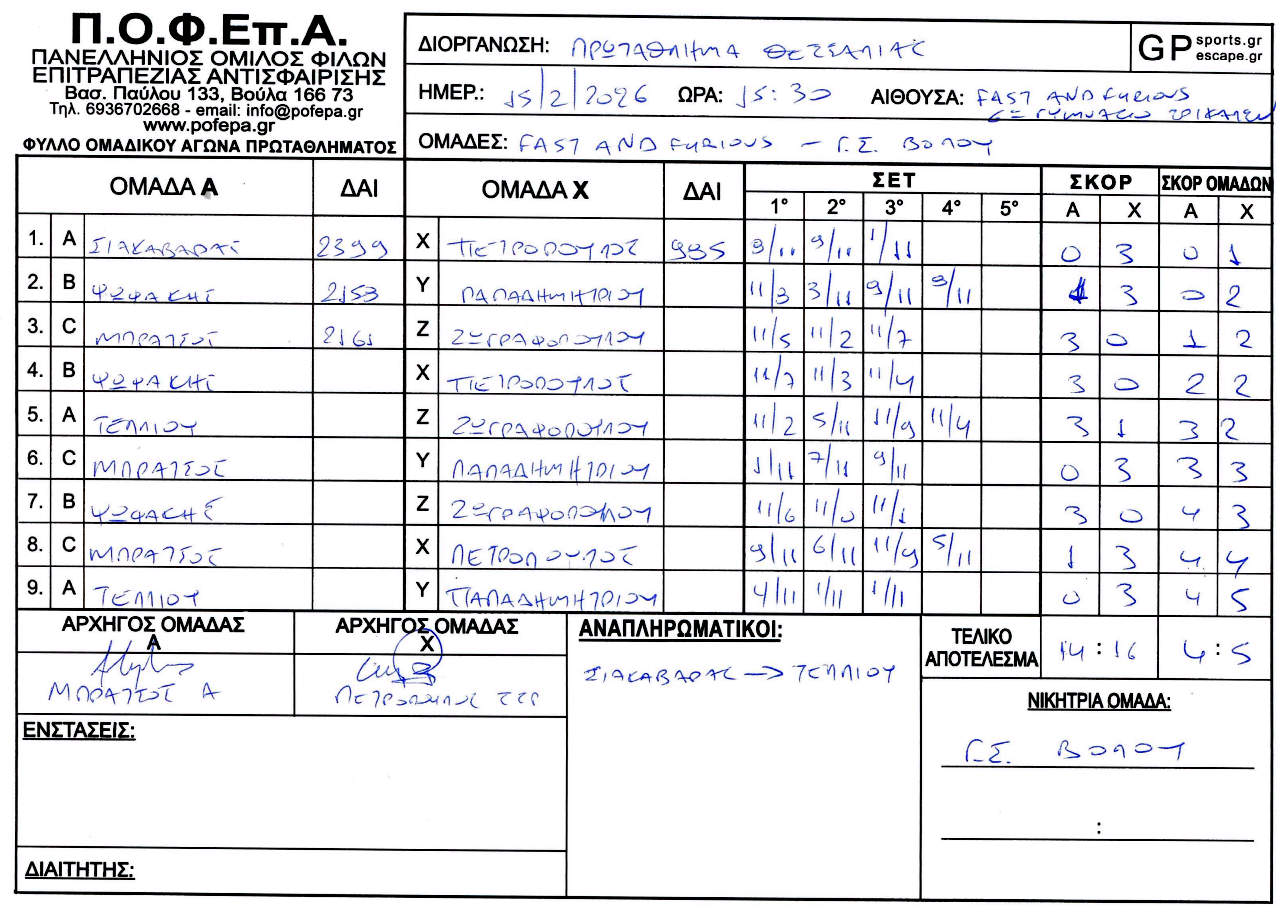 Π.Ο.Φ.Επ.Α.
ΠΑΝΕΛΛΗΝΙΟΣ ΟΜΙΛΟΣ ΦΙΛΩΝ
ΕΠΙΤΡΑΠΕΖΙΑΣ ΑΝΤΙΣΦΑΙΡΙΣΗΣ
Βασ. Παύλου 133, Βούλα 166 73
Τηλ. 6936702668 - email: info@pofepa.gr
www.pofepa.gr
ΦΥΛΛΟ ΟΜΑΔΙΚΟΥ ΑΓΩΝΑ ΠΡΩΤΑΘΛΗΜΑΤΟΣ
ΔΙΟΡΓΑΝΩΣΗ: ΠΡΩΤΑΘΛΗΜΑ ΘΕΣΣΑΛΙΑΣ
GP sports.gr
escape.gr
ΗΜΕΡ.: 15/2/2026 ΩΡΑ: 15:30 ΑΙΘΟΥΣΑ: FAST AND FURIOUS
ΓΥΜΝΑΣΙΟ ΤΡΙΚΑΛΩΝ
ΟΜΑΔΕΣ: FAST AND FURIOUS - Γ.Σ. ΒΟΛΟΥ
ΟΜΑΔΑ Α ΔΑΙ ΟΜΑΔΑ Χ ΔΑΙ ΣΕΤ ΣΚΟΡ ΣΚΟΡ ΟΜΑΔΩΝ
1° 2° 3° 4° 5° Α Χ Α Χ
1. Α ΣΙΑΚΑΒΑΡΑΣ 2399 Χ ΠΕΤΡΟΠΟΥΛΟΣ 995 9/11 9/11 1/11 0 3 0 1
2. Β ΨΩΦΑΚΗΣ 2153 Υ ΠΑΠΑΔΗΜΗΤΡΙΟΥ 11/3 3/11 9/11 9/11 1 3 0 2
3. C ΜΠΡΑΤΣΟΣ 2161 Ζ ΖΩΓΡΑΦΟΠΟΥΛΟΥ 11/5 11/2 11/7 3 0 1 2
4. Β ΨΩΦΑΚΗΣ Χ ΠΕΤΡΟΠΟΥΛΟΣ 11/7 11/3 11/4 3 0 2 2
5. Α ΤΕΛΛΙΟΥ Ζ ΖΩΓΡΑΦΟΠΟΥΛΟΥ 11/2 5/11 11/9 11/4 3 1 3 2
6. C ΜΠΡΑΤΣΟΣ Υ ΠΑΠΑΔΗΜΗΤΡΙΟΥ 1/11 7/11 9/11 0 3 3 3
7. Β ΨΩΦΑΚΗΣ Ζ ΖΩΓΡΑΦΟΠΟΥΛΟΥ 11/6 11/0 11/1 3 0 4 3
8. C ΜΠΡΑΤΣΟΣ Χ ΠΕΤΡΟΠΟΥΛΟΣ 9/11 6/11 11/9 5/11 1 3 4 4
9. Α ΤΕΛΛΙΟΥ Υ ΠΑΠΑΔΗΜΗΤΡΙΟΥ 4/11 1/11 1/11 0 3 4 5
ΑΡΧΗΓΟΣ ΟΜΑΔΑΣ Α
ΜΠΡΑΤΣΟΣ Α
ΑΡΧΗΓΟΣ ΟΜΑΔΑΣ Χ
ΠΕΤΡΟΠΟΥΛΟΣ
ΑΝΑΠΛΗΡΩΜΑΤΙΚΟΙ:
ΣΙΑΚΑΒΑΡΑΣ → ΤΕΛΛΙΟΥ
ΤΕΛΙΚΟ ΑΠΟΤΕΛΕΣΜΑ 14 : 16 4 : 5
ΝΙΚΗΤΡΙΑ ΟΜΑΔΑ:
Γ.Σ. ΒΟΛΟΥ
:
ΕΝΣΤΑΣΕΙΣ:
ΔΙΑΙΤΗΤΗΣ: